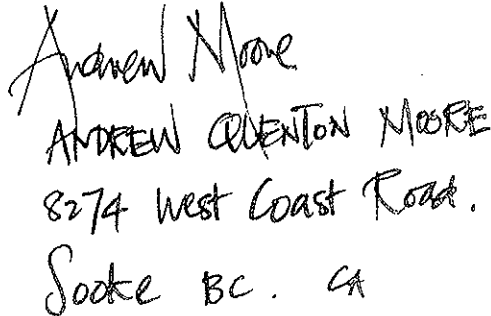 Andrew Moore
ANDREW QUENTON MOORE
8274 West Coast Road.
Sooke BC. CA